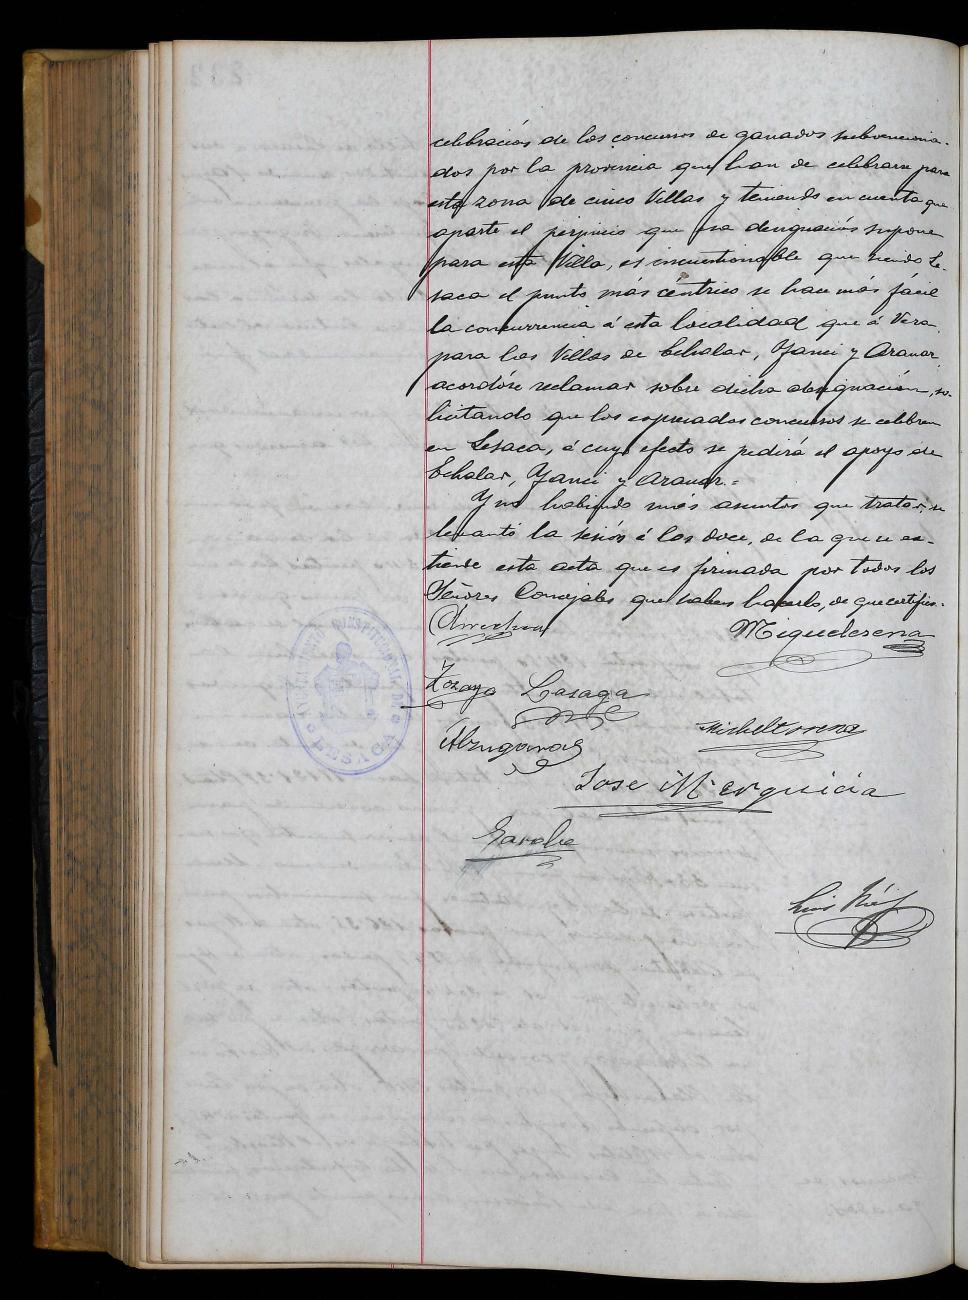 celebración de los concursos de ganados subvenciona-
dos por la provincia que han de celebrarse para
esta zona de cinco Villas y teniendo en cuenta que
aparte el perjuicio que esa designación supone
para esta Villa, es incuestionable que siendo Le-
saca el punto más céntrico se hace más fácil
la concurrencia á esta localidad que á Vera
para las Villas de Echalar, Yanci y Aranaz
acordóse reclamar sobre dicha designación, so-
licitando que los expresados concursos se celebren
en Lesaca, á cuyo efecto se pedirá el apoyo de
Echalar, Yanci y Aranaz.=
Y no habiendo más asuntos que tratar, se
levantó la sesión á las doce, de la que se es-
tiende esta acta que es firmada por todos los
Señores Concejales que saben hacerlo, de que certifico.
Miguelerena
Zozaya Lasaga
AYUNTAMIENTO CONSTITUCIONAL DE
LESACA
Michelterena
Abzugaray
Jose M. Erquicia
Luis